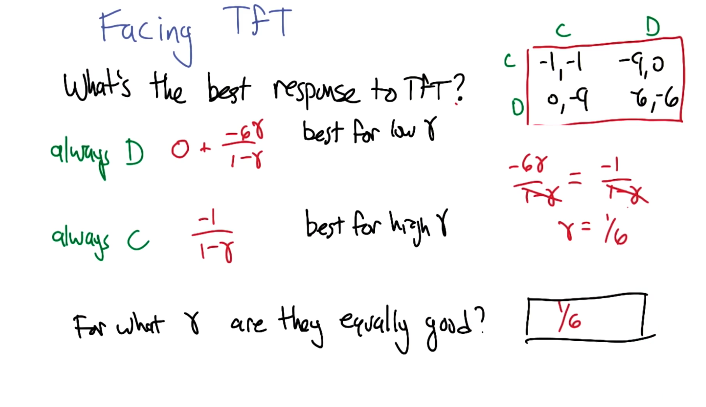 Facing TfT
What's the best response to TfT?
C D
C -1,-1 -9,0
D 0,-9 -6,-6
always D 0 + -6γ/1-γ best for low γ
-6γ/1-γ = -1/1-γ
γ = 1/6
always C -1/1-γ best for high γ
For what γ are they equally good? 1/6